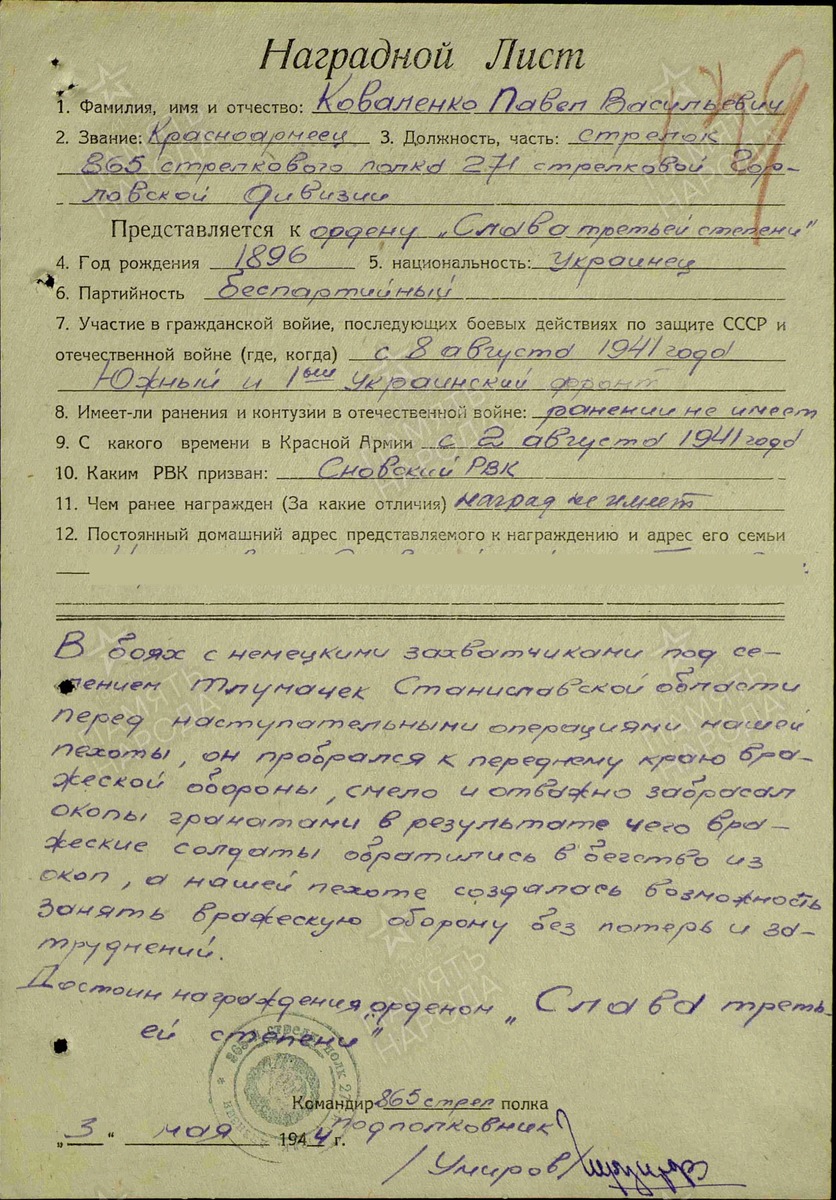 Наградной Лист
1. Фамилия, имя и отчество: Коваленко Павел Васильевич
2. Звание: Красноармеец 3. Должность, часть: стрелок
865 стрелкового полка 271 стрелковой Гор-
ловской дивизии
Представляется к ордену „Слава третьей степени"
4. Год рождения 1896 5. национальность: Украинец
6. Партийность беспартийный
7. Участие в гражданской войне, последующих боевых действиях по защите СССР и
отечественной войне (где, когда) с 8 августа 1941 года
Южный и 1ый Украинский фронт
8. Имеет-ли ранения и контузии в отечественной войне: ранений не имеет
9. С какого времени в Красной Армии с 2 августа 1941 года
10. Каким РВК призван: Сновский РВК
11. Чем ранее награжден (За какие отличия) наград не имеет
12. Постоянный домашний адрес представляемого к награждению и адрес его семьи
В боях с немецкими захватчиками под се-
лением Тлумачек Станиславской области
перед наступательными операциями нашей
пехоты, он пробрался к переднему краю вра-
жеской обороны, смело и отважно забрасал
окопы гранатами в результате чего вра-
жеские солдаты обратились в бегство из
окоп, а нашей пехоте создалась возможность
занять вражескую оборону без потерь и за-
труднений.
Достоин награждения орденом „Слава треть-
ей степени"
Командир 865 стрел полка
„3" мая 1944 г. подполковник
/Умиров/
ПАМЯТЬ НАРОДА